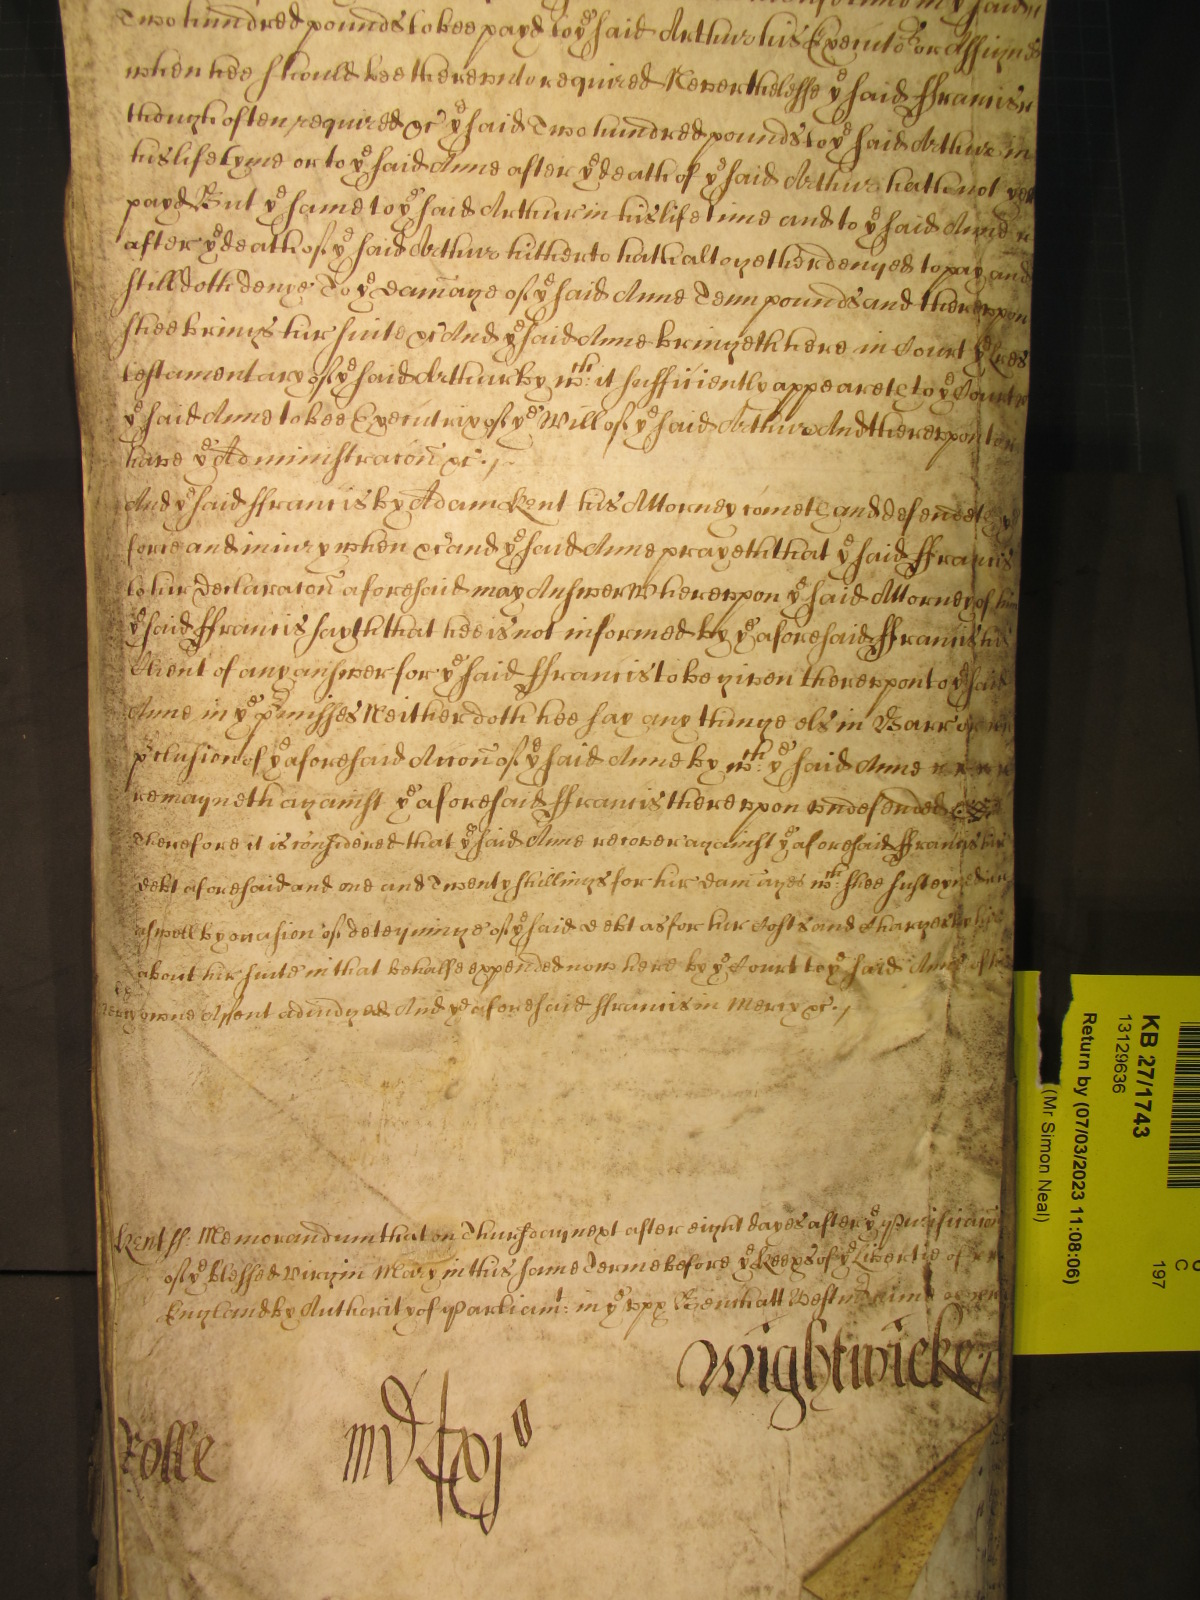 Two hundred pounds to bee payd to yᵉ said Arthur his Executoʳˢ or Assignes
when hee should bee thereunto required Neverthelesse yᵉ said ffrancis
though often required &c yᵉ said Two hundred pounds to yᵉ said Arthur in
his life tyme or to yᵉ said Anne after yᵉ death of yᵉ said Arthur hath not yet
payd But yᵉ same to yᵉ said Arthur in his life time and to yᵉ said Anne
after yᵉ death of yᵉ said Arthur hitherto hath altogether denyed to pay and
still doth denye To yᵉ damage of yᵉ said Anne Tenn pounds and thereupon
shee brings hur suite &c And yᵉ said Anne bringeth here in Court yᵉ Lres
testamentary of yᵉ said Arthur by wᶜʰ: it sufficiently appeareth to yᵉ Court
yᵉ said Anne to bee Executrix of yᵉ Will of yᵉ said Arthur And thereupon to
have yᵉ Administracon &c./
And yᵉ said ffrancis by Adam Kent his Attorney cometh and defendeth yᵉ
force and iniury when &c and yᵉ said Anne prayeth that yᵉ said ffrancis
to hur Declaracon aforesaid may Answer Whereupon yᵉ said Attorney of him
yᵉ said ffrancis sayth that hee is not informed by yᵉ aforesaid ffrancis his
Client of any answer for yᵉ said ffrancis to be given thereupon to yᵉ said
Anne in yᵉ pʳmisses Neither doth hee say any thinge els in Barr or
pʳclusion of yᵉ aforesaid Accon of yᵉ said Anne by wᶜʰ: yᵉ said Anne
remayneth against yᵉ aforesaid ffrancis thereupon undefended
Therefore it is considered that yᵉ said Anne recover against yᵉ aforesaid ffrancis hur
debt aforesaid and one and Twenty shillings for hur damages wᶜʰ: shee susteyned
aswell by occasion of deteyninge of yᵉ said debt as for hur Costs and Charges by hur
about hur suite in that behalfe expended now here by yᵉ Court to yᵉ said Anne of
owne Assent adiudged And yᵉ aforesaid ffrancis in Mercy &c./
Kent ss: Memorandum that on Thursday next after eight dayes after yᵉ Purificacon
of yᵉ blessed Virgin Mary in this same Terme before yᵉ Keepʳs of yᵉ Libertie of
England by Authority of Parliamᵗ: in yᵉ upp Bench att Westmʳ
Wightwicke
Rolle
KB 27/1743
13129636
Return by (07/03/2023 11:08:06)
(Mr Simon Neal)
C
197